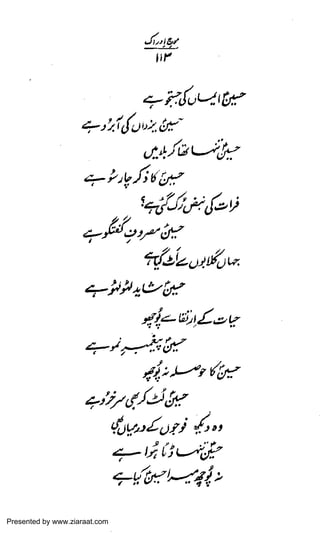 موجِ ادراک
۱۱۳
حسینؑ ایماں کی جستجو ہے
حسینؑ یزداں کی آبرو ہے
حسینؑ تنہا تھا کربلا میں
حسینؑ کا ذکر چار سُو ہے
فرات کی نبض رُک گئی ہے؟
حسینؑ مصروفِ گفتگو ہے
جہاں گلابوں سے اَٹ گیا ہے
حسینؑ شاید لہو لہو ہے
حیات کے ارتقا سے پُوچھو
حسینؑ پیغمبرِ نمو ہے
حسینؑ کا حوصلہ نہ پُوچھو
حسینؑ لُٹ کر بھی سرخرُو ہے
وہ دیکھ فوجوں کے درمیاں بھی
حسینؑ تنہا ڈٹا ہُوا ہے
نہ پُوچھ میرا حسینؑ کیا ہے
Presented by www.ziaraat.com